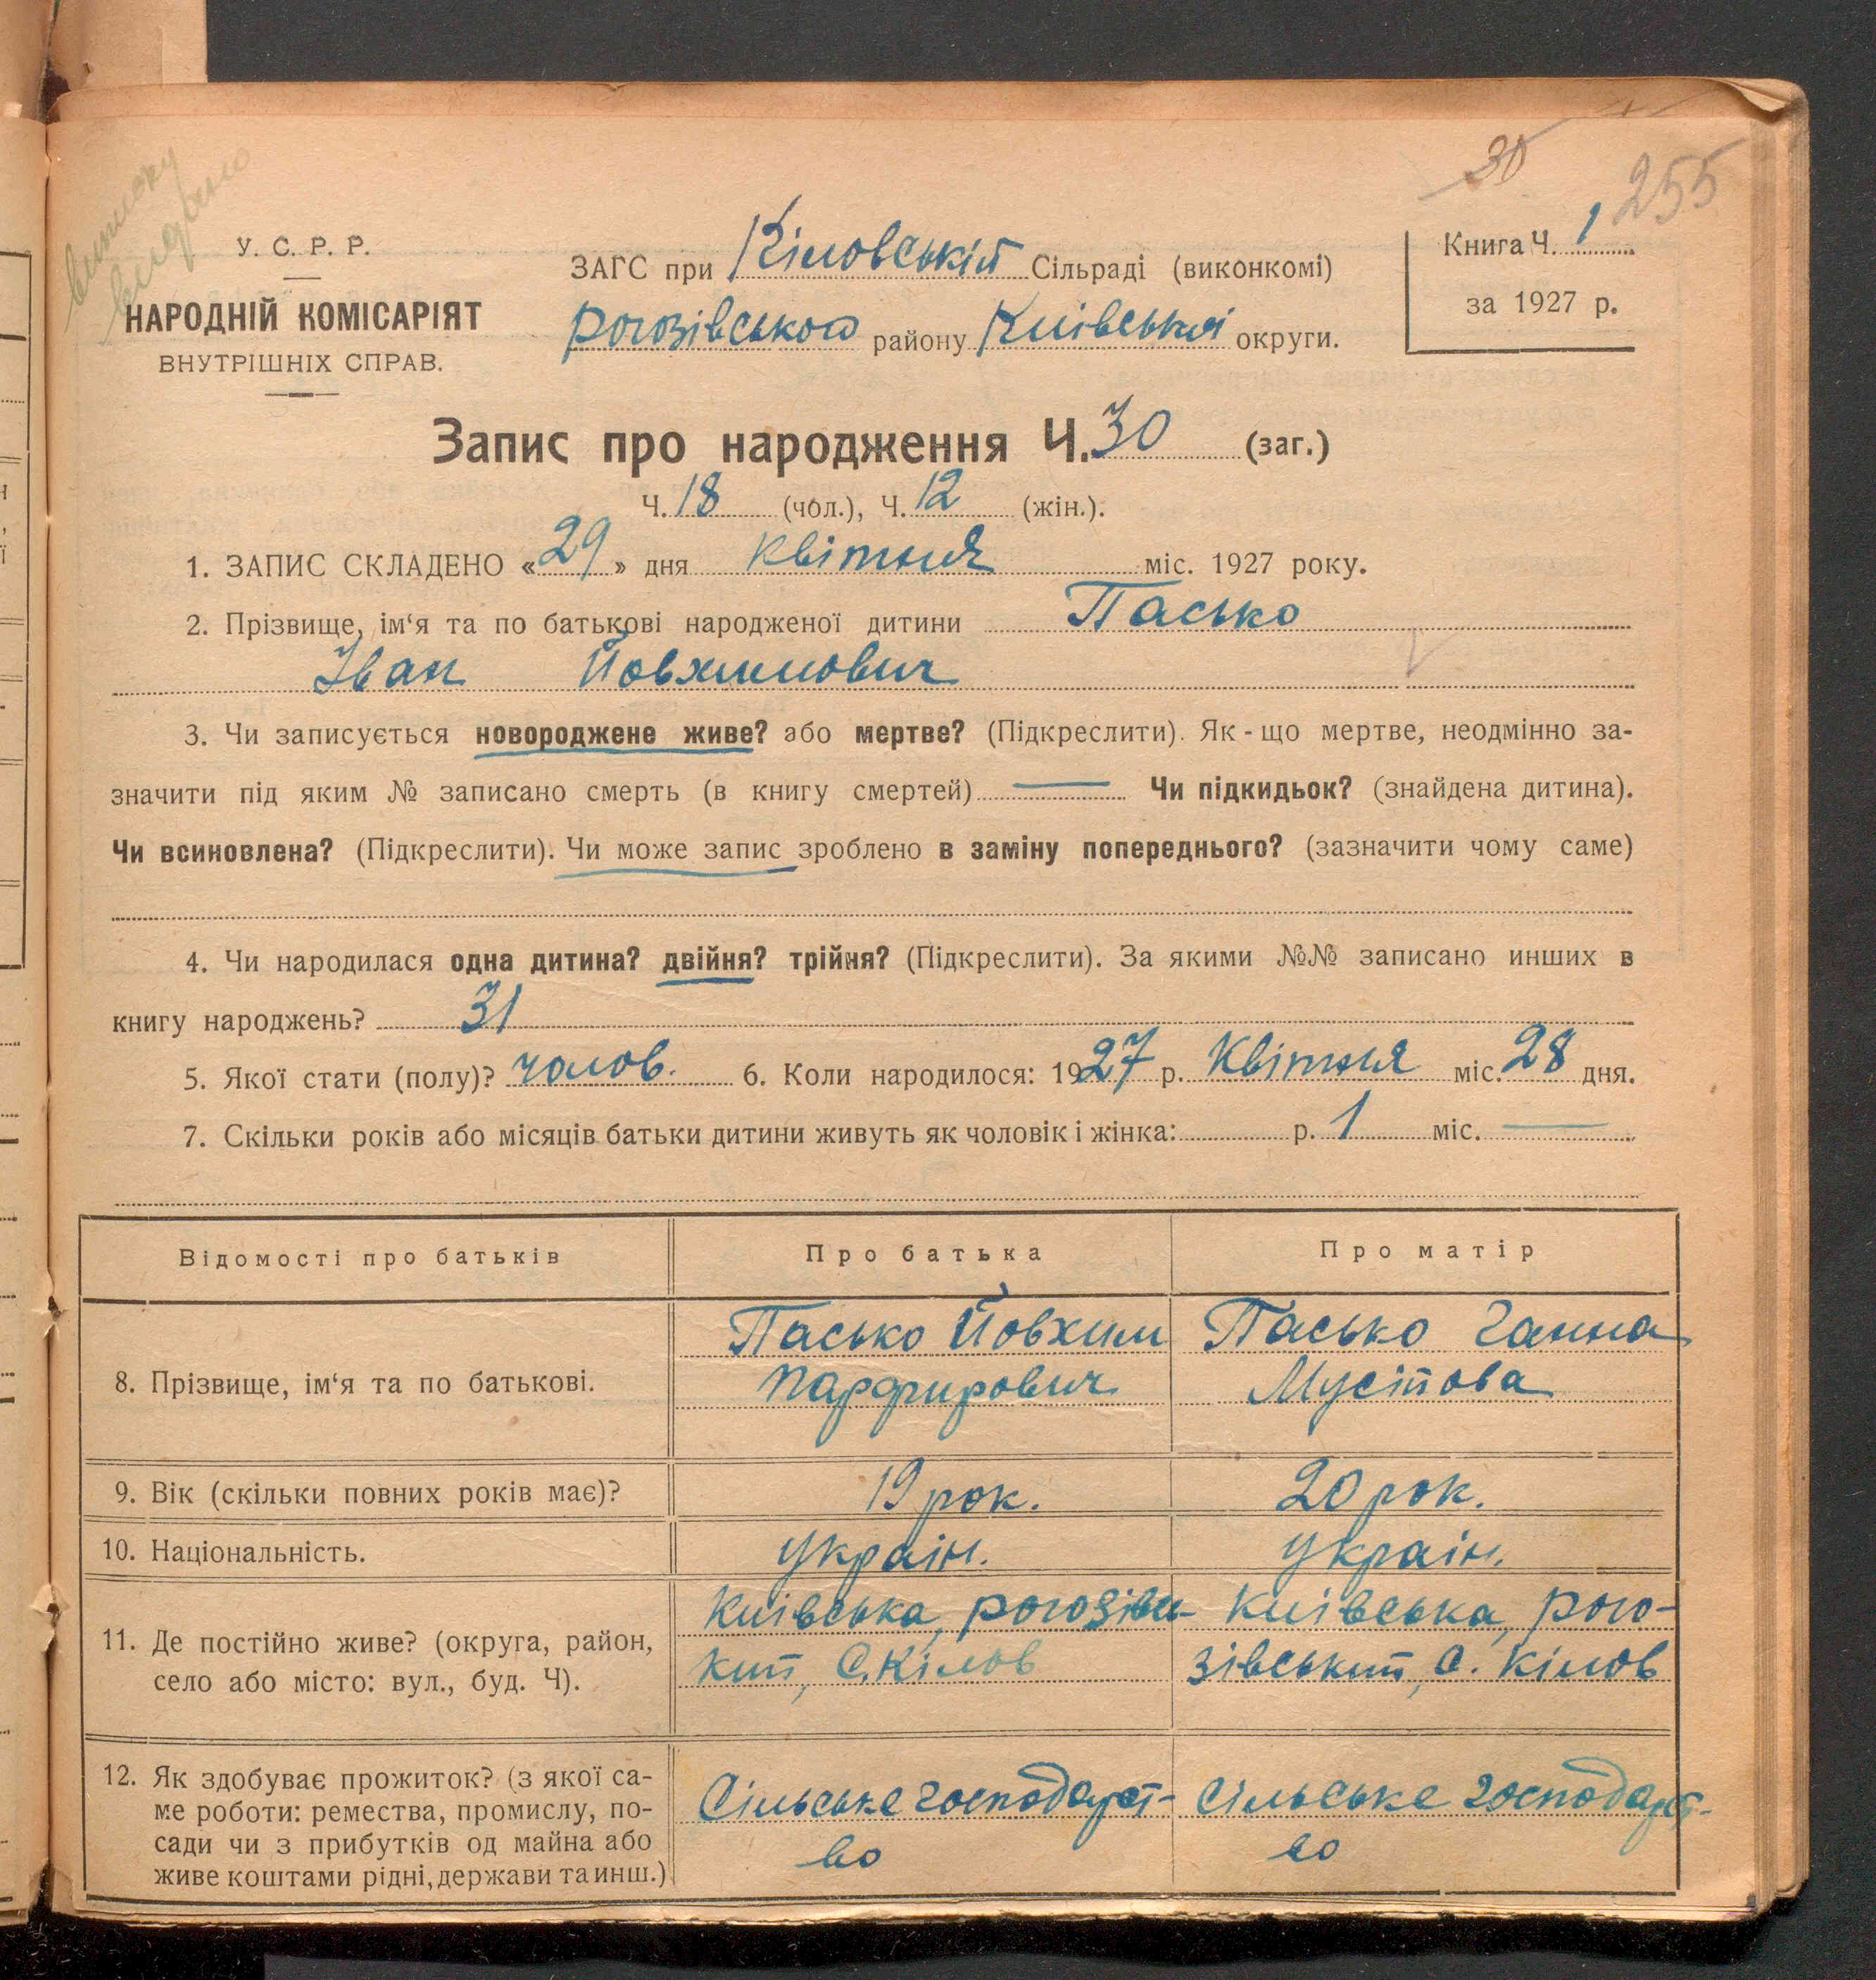 30
255
виписку
видано
У. С. Р. Р.
НАРОДНІЙ КОМІСАРІЯТ
ВНУТРІШНІХ СПРАВ.
ЗАГС при Кіловській Сільраді (виконкомі)
рогозівського району Київської округи.
Книга Ч. 1
за 1927 р.
Запис про народження Ч. 30 (заг.)
Ч. 18 (чол.), Ч. 12 (жін.).
1. ЗАПИС СКЛАДЕНО «29» дня квітня міс. 1927 року.
2. Прізвище, ім‘я та по батькові народженої дитини Пасько
Іван Йовхимович
3. Чи записується новороджене живе? або мертве? (Підкреслити). Як-що мертве, неодмінно за-
значити під яким № записано смерть (в книгу смертей) — Чи підкидьок? (знайдена дитина).
Чи всиновлена? (Підкреслити). Чи може запис зроблено в заміну попереднього? (зазначити чому саме)
4. Чи народилася одна дитина? двійня? трійня? (Підкреслити). За якими №№ записано инших в
книгу народжень? 31
5. Якої стати (полу)? чолов. 6. Коли народилося: 1927 р. Квітня міс. 28 дня.
7. Скільки років або місяців батьки дитини живуть як чоловік і жінка: р. 1 міс. —
Відомості про батьків Про батька Про матір
8. Прізвище, ім‘я та по батькові.
Пасько Йовхим
Парфирович
Пасько Ганна
Мусійова
9. Вік (скільки повних років має)? 19 рок. 20 рок.
10. Національність. україн. україн.
11. Де постійно живе? (округа, район,
село або місто: вул., буд. Ч).
Київська, рогозівсь-
кий, С. Кілов
Київська, рого-
зівський, с. Кілов
12. Як здобуває прожиток? (з якої са-
ме роботи: ремества, промислу, по-
сади чи з прибутків од майна або
живе коштами рідні, держави та инш.)
Сільське господарст-
во
сільське господарст-
во